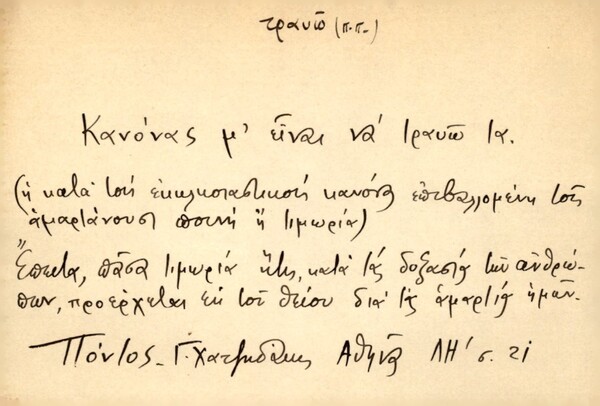 τραυῶ (π.π.)
Κανόνας μ' εἶναι νά τραυῶ τα.
(ἡ κατά τούς ἐκκλησιαστικούς κανόνας ἐπιβαλλομένη τοῖς
ἁμαρτάνουσι ποινή ἤ τιμωρία)
Ἔπειτα, πᾶσα τιμωρία ἥτις, κατά τάς δοξασίας τῶν ἀνθρώ-
πων, προέρχεται ἐκ τοῦ θείου διά τάς ἁμαρτίας ἡμῶν.
Πόντος - Γ. Χατζηδάκις Ἀθηνᾶ ΛΗ' σ. 21